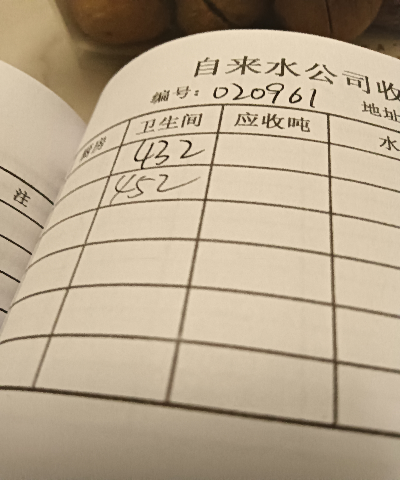 自来水公司收
编号：020961 地址
厨房 卫生间 应收吨 水
432
452
注